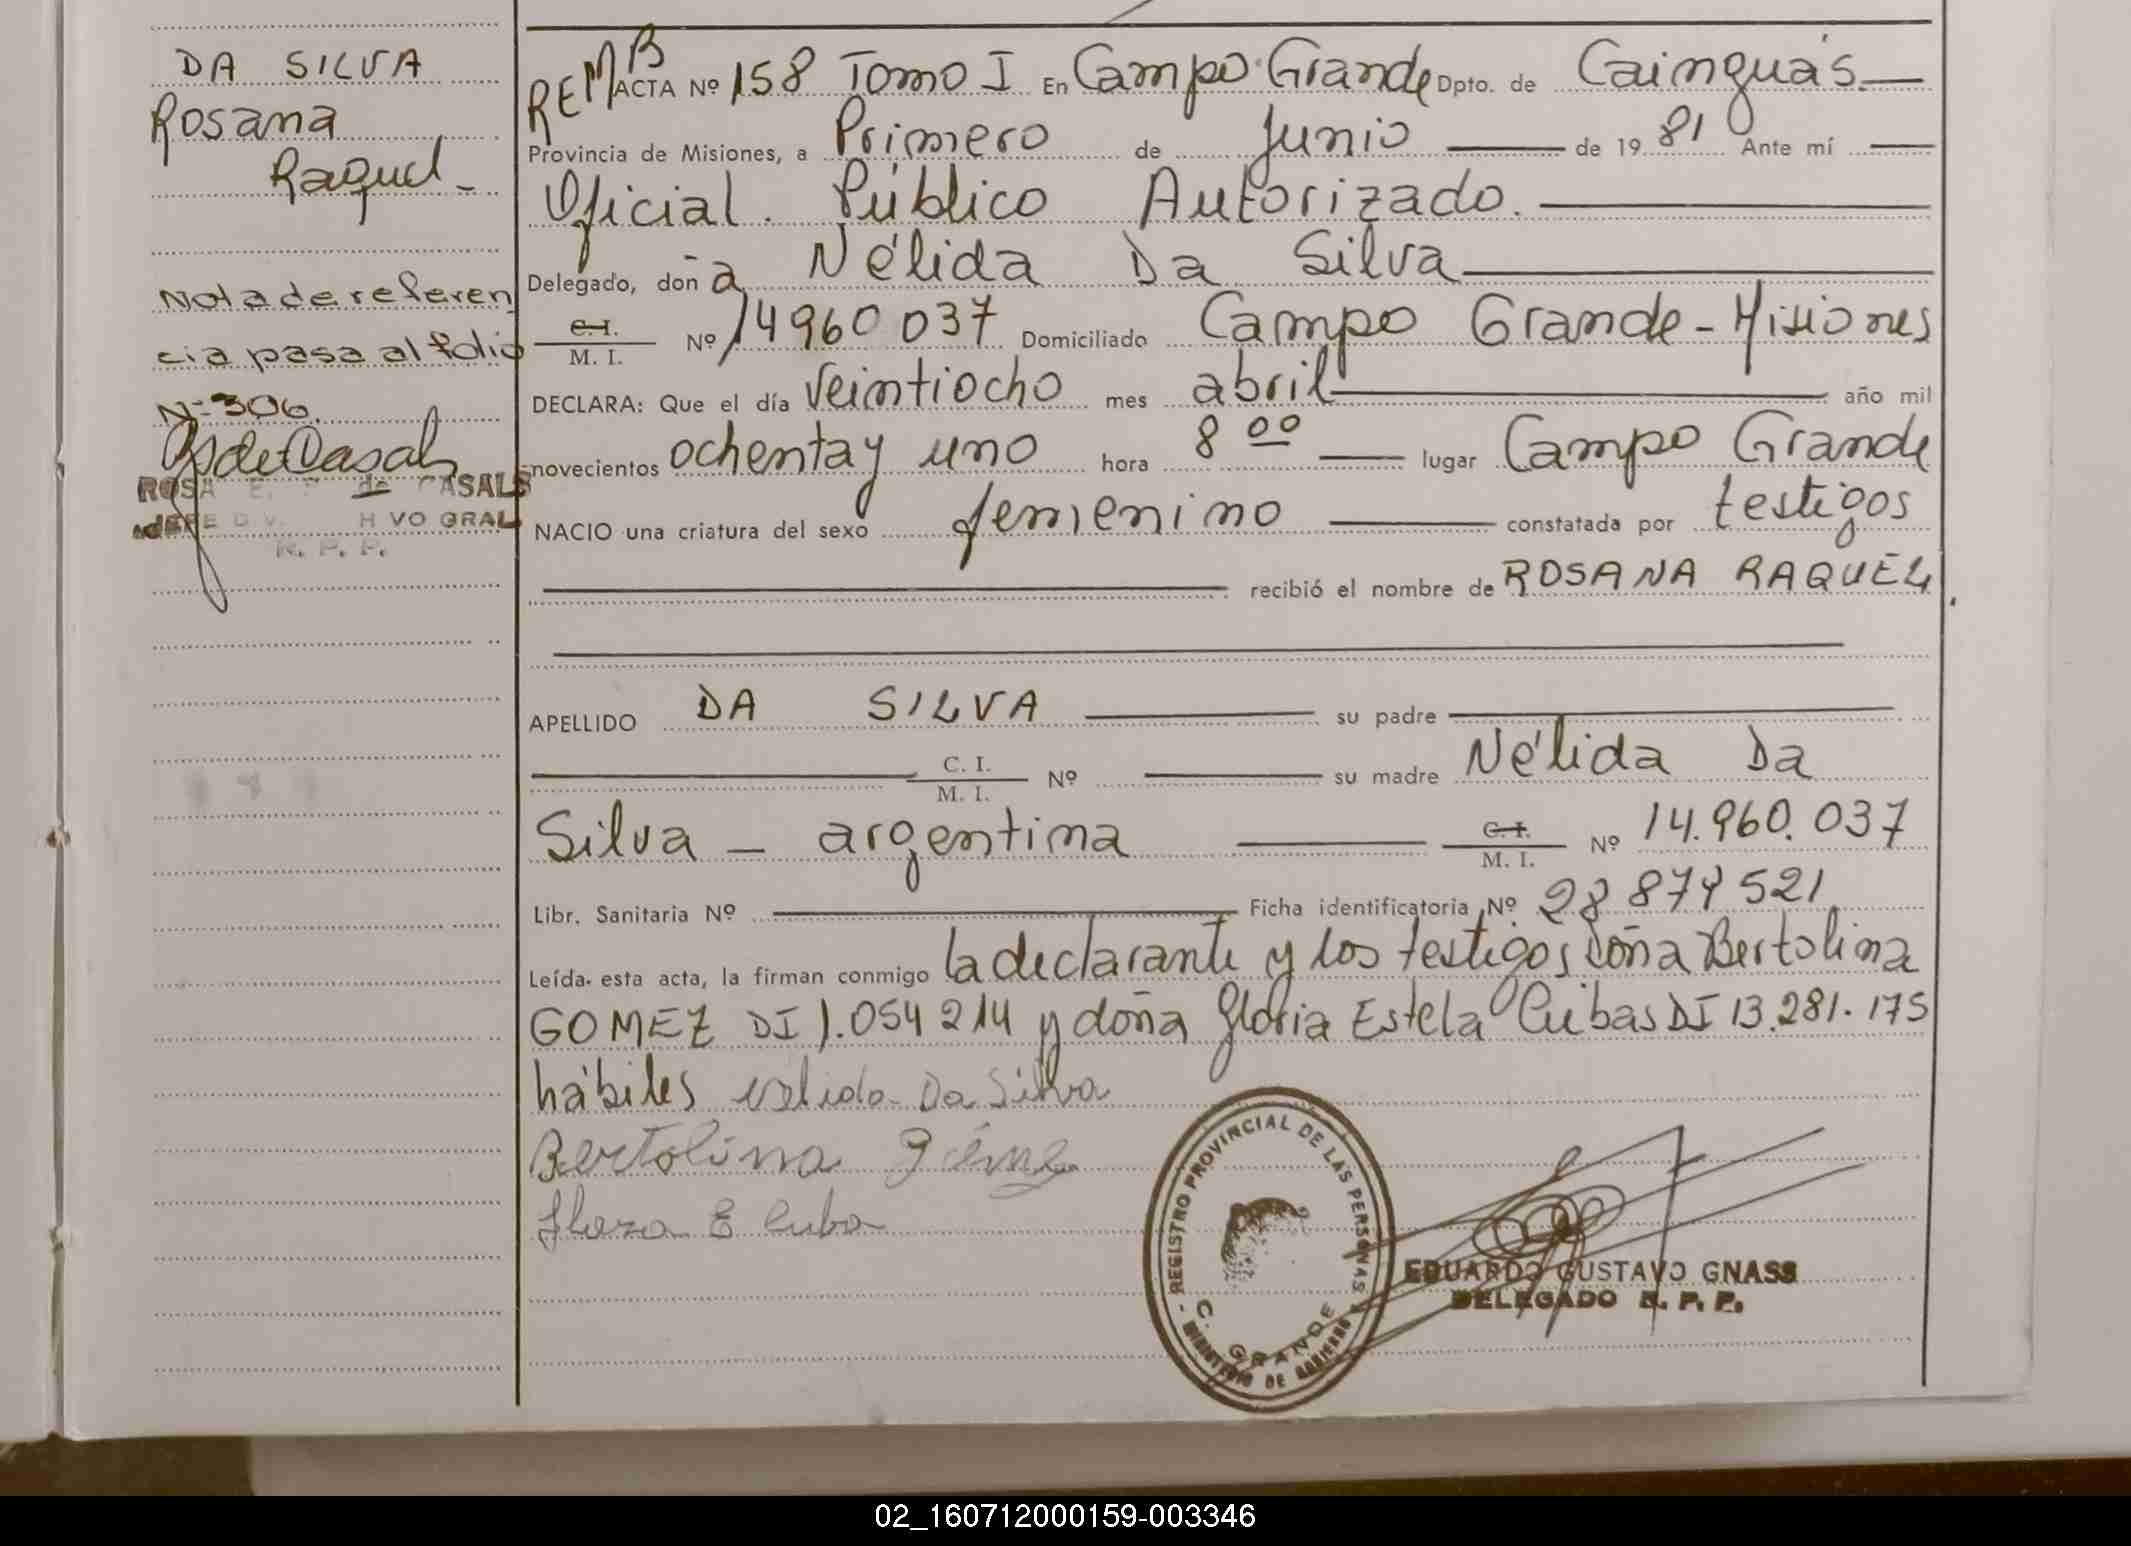 DA SILVA
Rosana
Raquel -
Nota de referen
cia pasa al folio
Nº 306.
ROSA E. de CASALS
JEFE VO GRAL
R. P. P.
REMB
ACTA Nº 158 Tomo I En Campo Grande Dpto. de Cainguás.
Provincia de Misiones, a Primero de Junio de 1981 Ante mí
Oficial. Público Autorizado.
Delegado, doña Nélida Da Silva
C. I.
M. I. Nº 14960037 Domiciliado Campo Grande - Misiones
DECLARA: Que el día veintiocho mes abril año mil
novecientos ochenta y uno hora 8 00 lugar Campo Grande
NACIO una criatura del sexo femenino constatada por testigos
recibió el nombre de ROSANA RAQUEL
APELLIDO DA SILVA su padre
C. I.
M. I. Nº su madre Nélida Da
Silva - argentina C. I.
M. I. Nº 14.960.037
Libr. Sanitaria Nº Ficha identificatoria Nº 28 874 521
Leída esta acta, la firman conmigo la declarante y los testigos doña Bertolina
GOMEZ DI 1.054214 y doña Gloria Estela Cubas DI 13.281.175
hábiles Da Silva
Bertolina
REGISTRO PROVINCIAL DE LAS PERSONAS
C. GRANDE
MINISTERIO DE GOBIERNO
EDUARDO GUSTAVO GNASS
DELEGADO R. P. P.
02_160712000159-003346